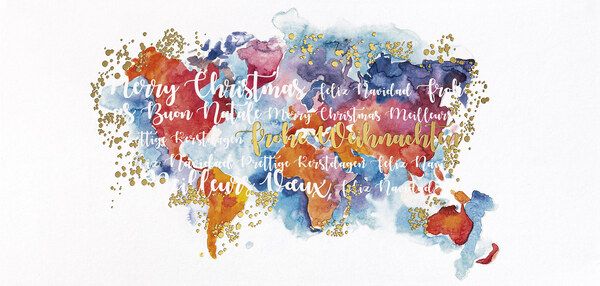 Merry Christmas Feliz Navidad Frohe
Buon Natale Merry Christmas Meilleurs
ttige Kerstdagen Frohe Weihnachten
iz Navidad Prettige Kerstdagen Feliz Navi
Meilleurs Vœux Feliz Navidad